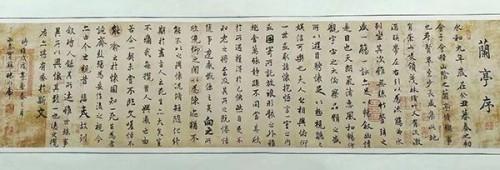 蘭亭序
永和九年歲在癸丑暮春之初
會于會稽山陰之蘭亭脩稧事
也群賢畢至少長咸集此地
有崇山峻領茂林脩竹又有清流激
湍暎帶左右引以為流觴曲水
列坐其次雖無絲竹管弦之
盛一觴一詠亦足以暢敘幽情
是日也天朗氣清惠風和暢仰
觀宇宙之大俯察品類之盛
所以遊目騁懷足以極視聽之
娛信可樂也夫人之相與俯仰
一世或取諸懷抱悟言一室之內
或因寄所託放浪形骸之外雖
趣舍萬殊靜躁不同當其欣
於所遇蹔得於己快然自足不
知老之將至及其所之既惓情
隨事遷感慨係之矣向之所
欣俛仰之間以為陳迹猶不
能不以之興懷況脩短隨化終
期於盡古人云死生亦大矣豈
不痛哉每攬昔人興感之由
若合一契未嘗不臨文嗟悼不
能喻之於懷固知一死生為虛
誕齊彭殤為妄作後之視今
亦由今之視昔悲夫故列
敘時人錄其所述雖世殊事
異所以興懷其致一也後之攬
者亦將有感於斯文